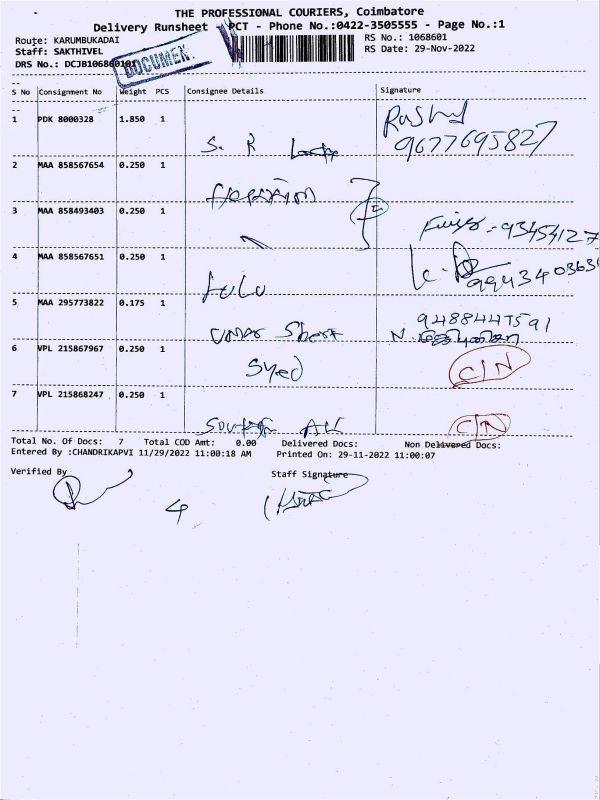 THE PROFESSIONAL COURIERS, Coimbatore
Delivery Runsheet - PCT - Phone No.:0422-3505555 - Page No.:1
Route: KARUMBUKADAI RS No.: 1068601
Staff: SAKTHIVEL RS Date: 29-Nov-2022
DRS No.: DCJB106860101
DOCUMENT
S No Consignment No Weight PCS Consignee Details Signature
1 PDK 8000328 1.850 1
S. R 9677695827
2 MAA 858567654 0.250 1
3 MAA 858493403 0.250 1
4 MAA 858567651 0.250 1
LuLu
5 MAA 295773822 0.175 1
Umar 9488447591
6 VPL 215867967 0.250 1
Syed C/N
7 VPL 215868247 0.250 1
C/N
Total No. Of Docs: 7 Total COD Amt: 0.00 Delivered Docs: Non Delivered Docs:
Entered By :CHANDRIKAPVI 11/29/2022 11:00:18 AM Printed On: 29-11-2022 11:00:07
Verified By Staff Signature
4